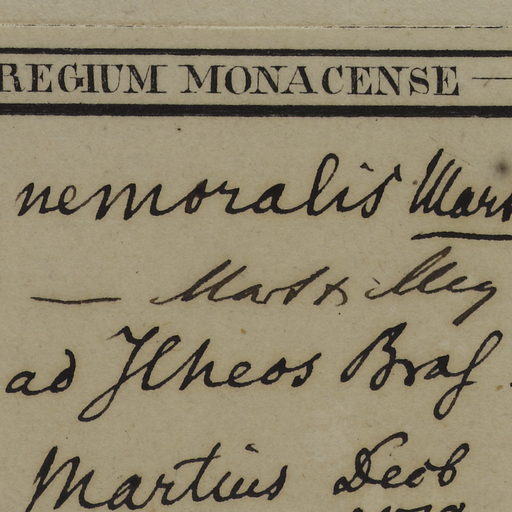 REGIUM MONACENSE —
nemoralis Mart
— Mart & Meg
ad Ilheos Bras
Martius Decb